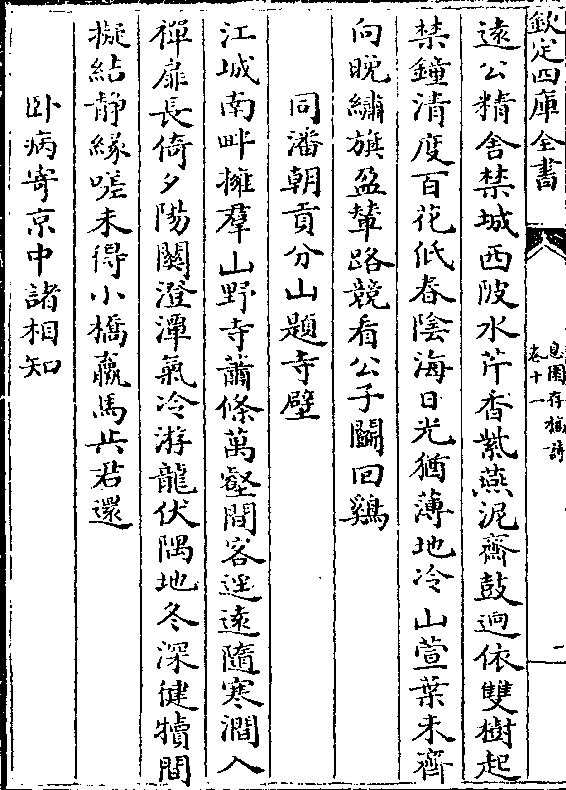 欽定四庫全書
息園存稿詩
卷十一
二
遠公精舍禁城西陂水芹香紫燕泥齋鼓迥依雙樹起
禁鐘清度百花低春陰海日光猶薄地冷山萱葉未齊
向晚繡旗盈輦路競看公子鬭回鷄
同潘朝貢分山題寺壁
江城南畔擁羣山野寺蕭條萬壑間客迷遠隨寒澗入
禪扉長倚夕陽關澄潭氣冷游龍伏隅地冬深健犢間
擬結静緣嗟未得小橋羸馬共君還
卧病寄京中諸相知